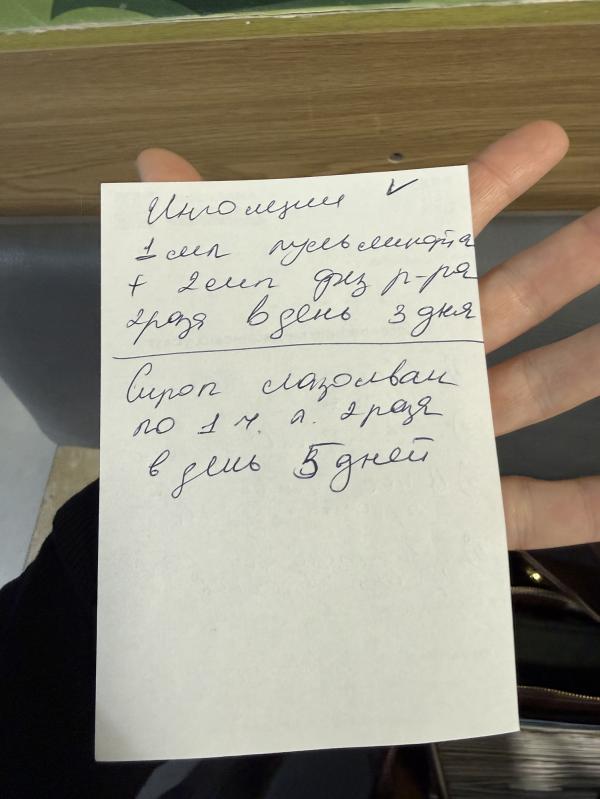 Ингаляции ✓
1 мл пульмикорта
+ 2 мл физ р-ра
2 раза в день 3 дня
Сироп лазолван
по 1 ч. л. 2 раза
в день 5 дней